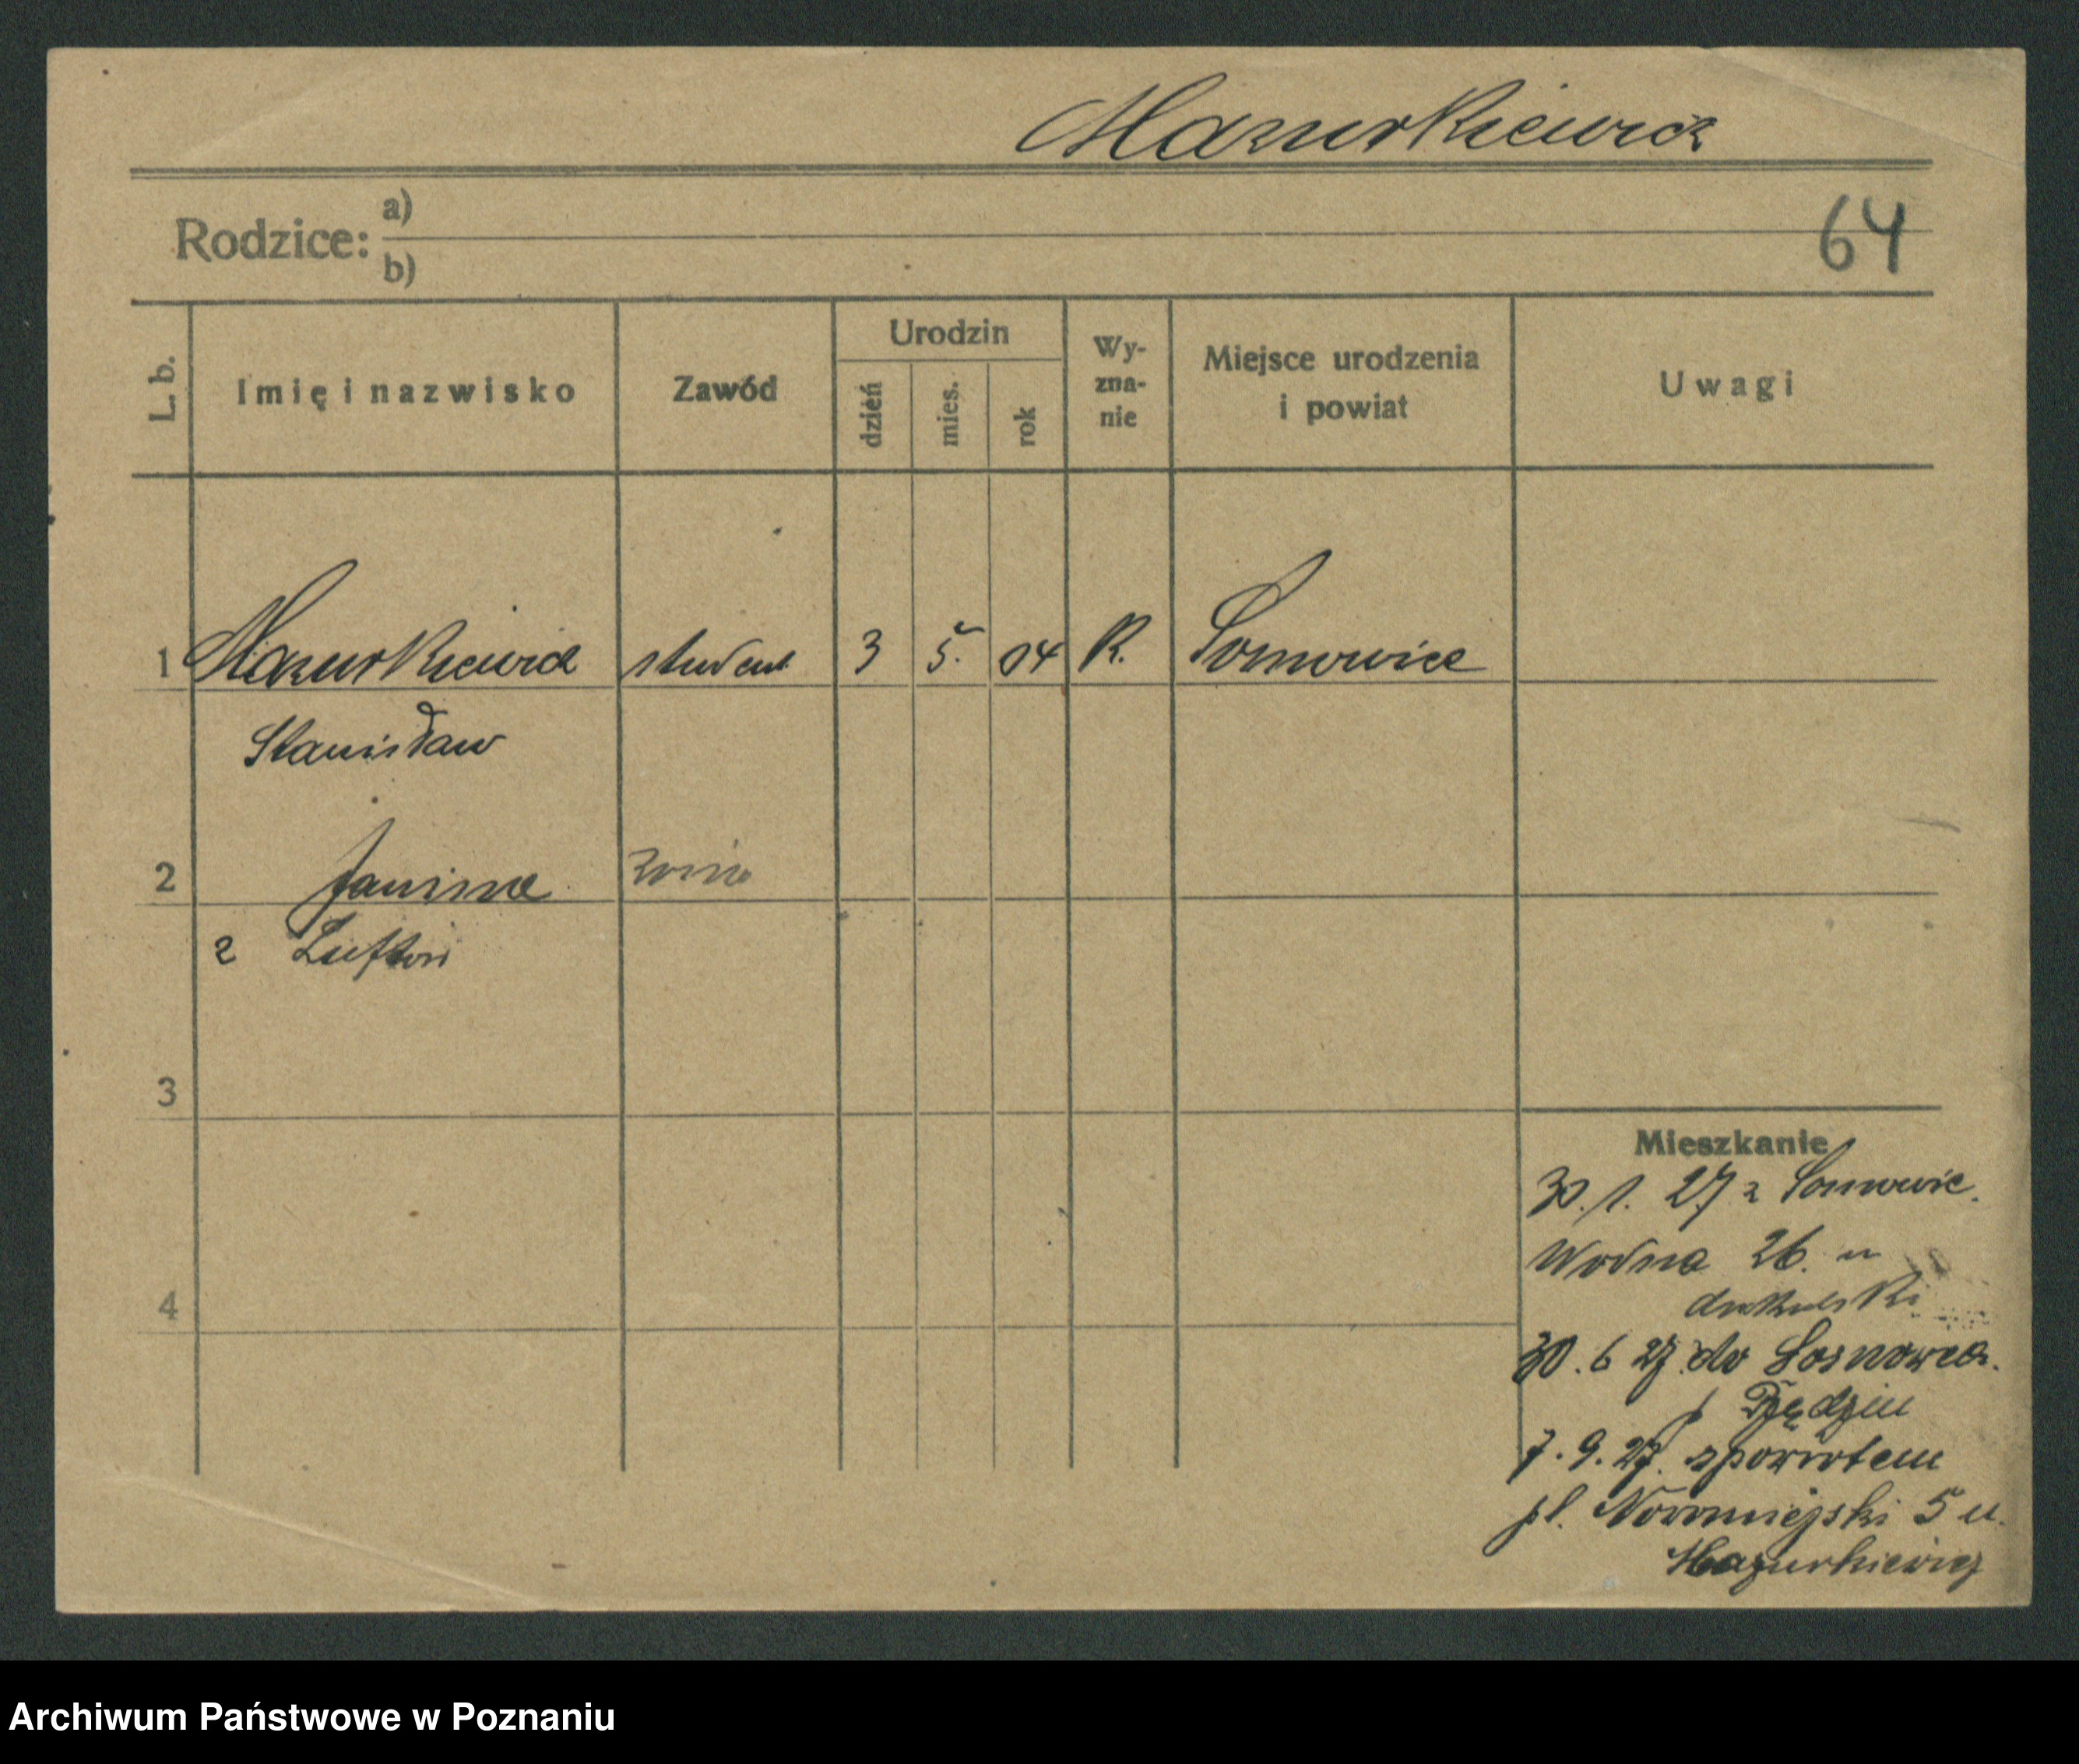 Mazurkiewicz
64
Rodzice: a)
b)
L. b. Imię i nazwisko Zawód Urodzin dzień mies. rok Wy-zna-nie Miejsce urodzenia i powiat Uwagi
1 Mazurkiewicz student 3 5. 04 R. Sosnowice
Stanisław
2 Janina żona
z
3
4
Mieszkanie
30. 1. 27 z Sosnowic.
Wodna 26. u
30. 6 27. do Sosnowca.
p Będzin
7. 9. 27. zpowrotem
pl. Nowomiejski 5 u.
Mazurkiewicz
Archiwum Państwowe w Poznaniu